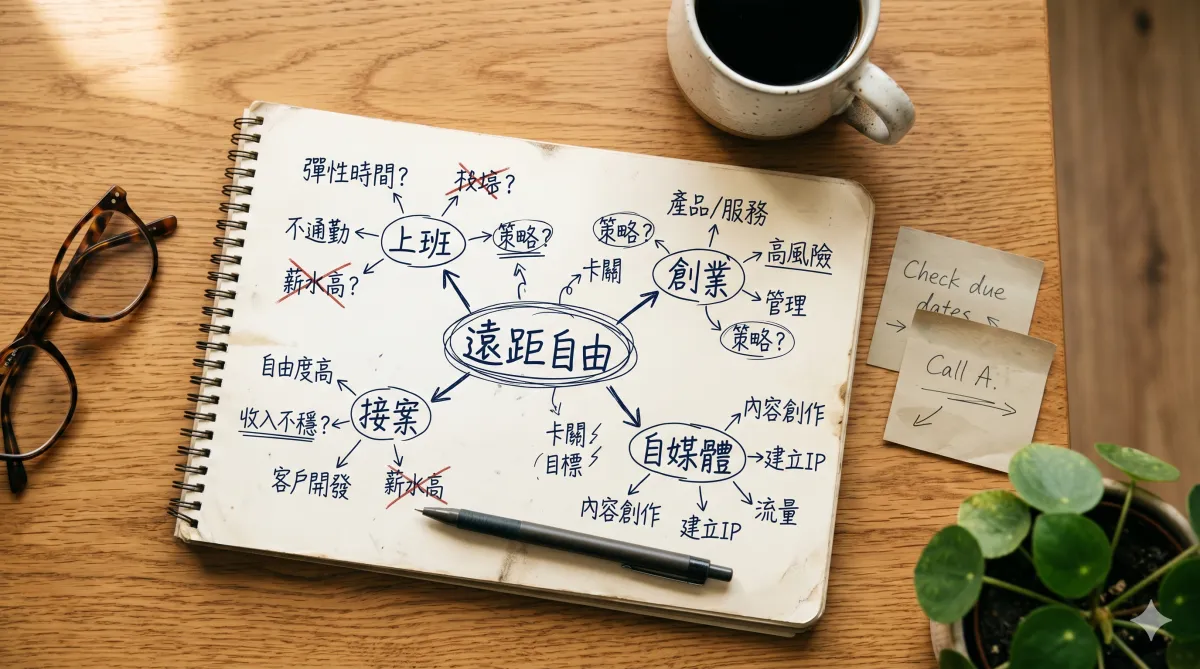 彈性時間?
不通勤
薪水高?
上班
策略?
卡關
策略?
產品/服務
創業
高風險
管理
策略?
遠距自由
自由度高
收入不穩?
接案
客戶開發
薪水高
卡關
目標
自媒體
內容創作
建立IP
流量
內容創作
建立IP
Check due
dates
Call A.